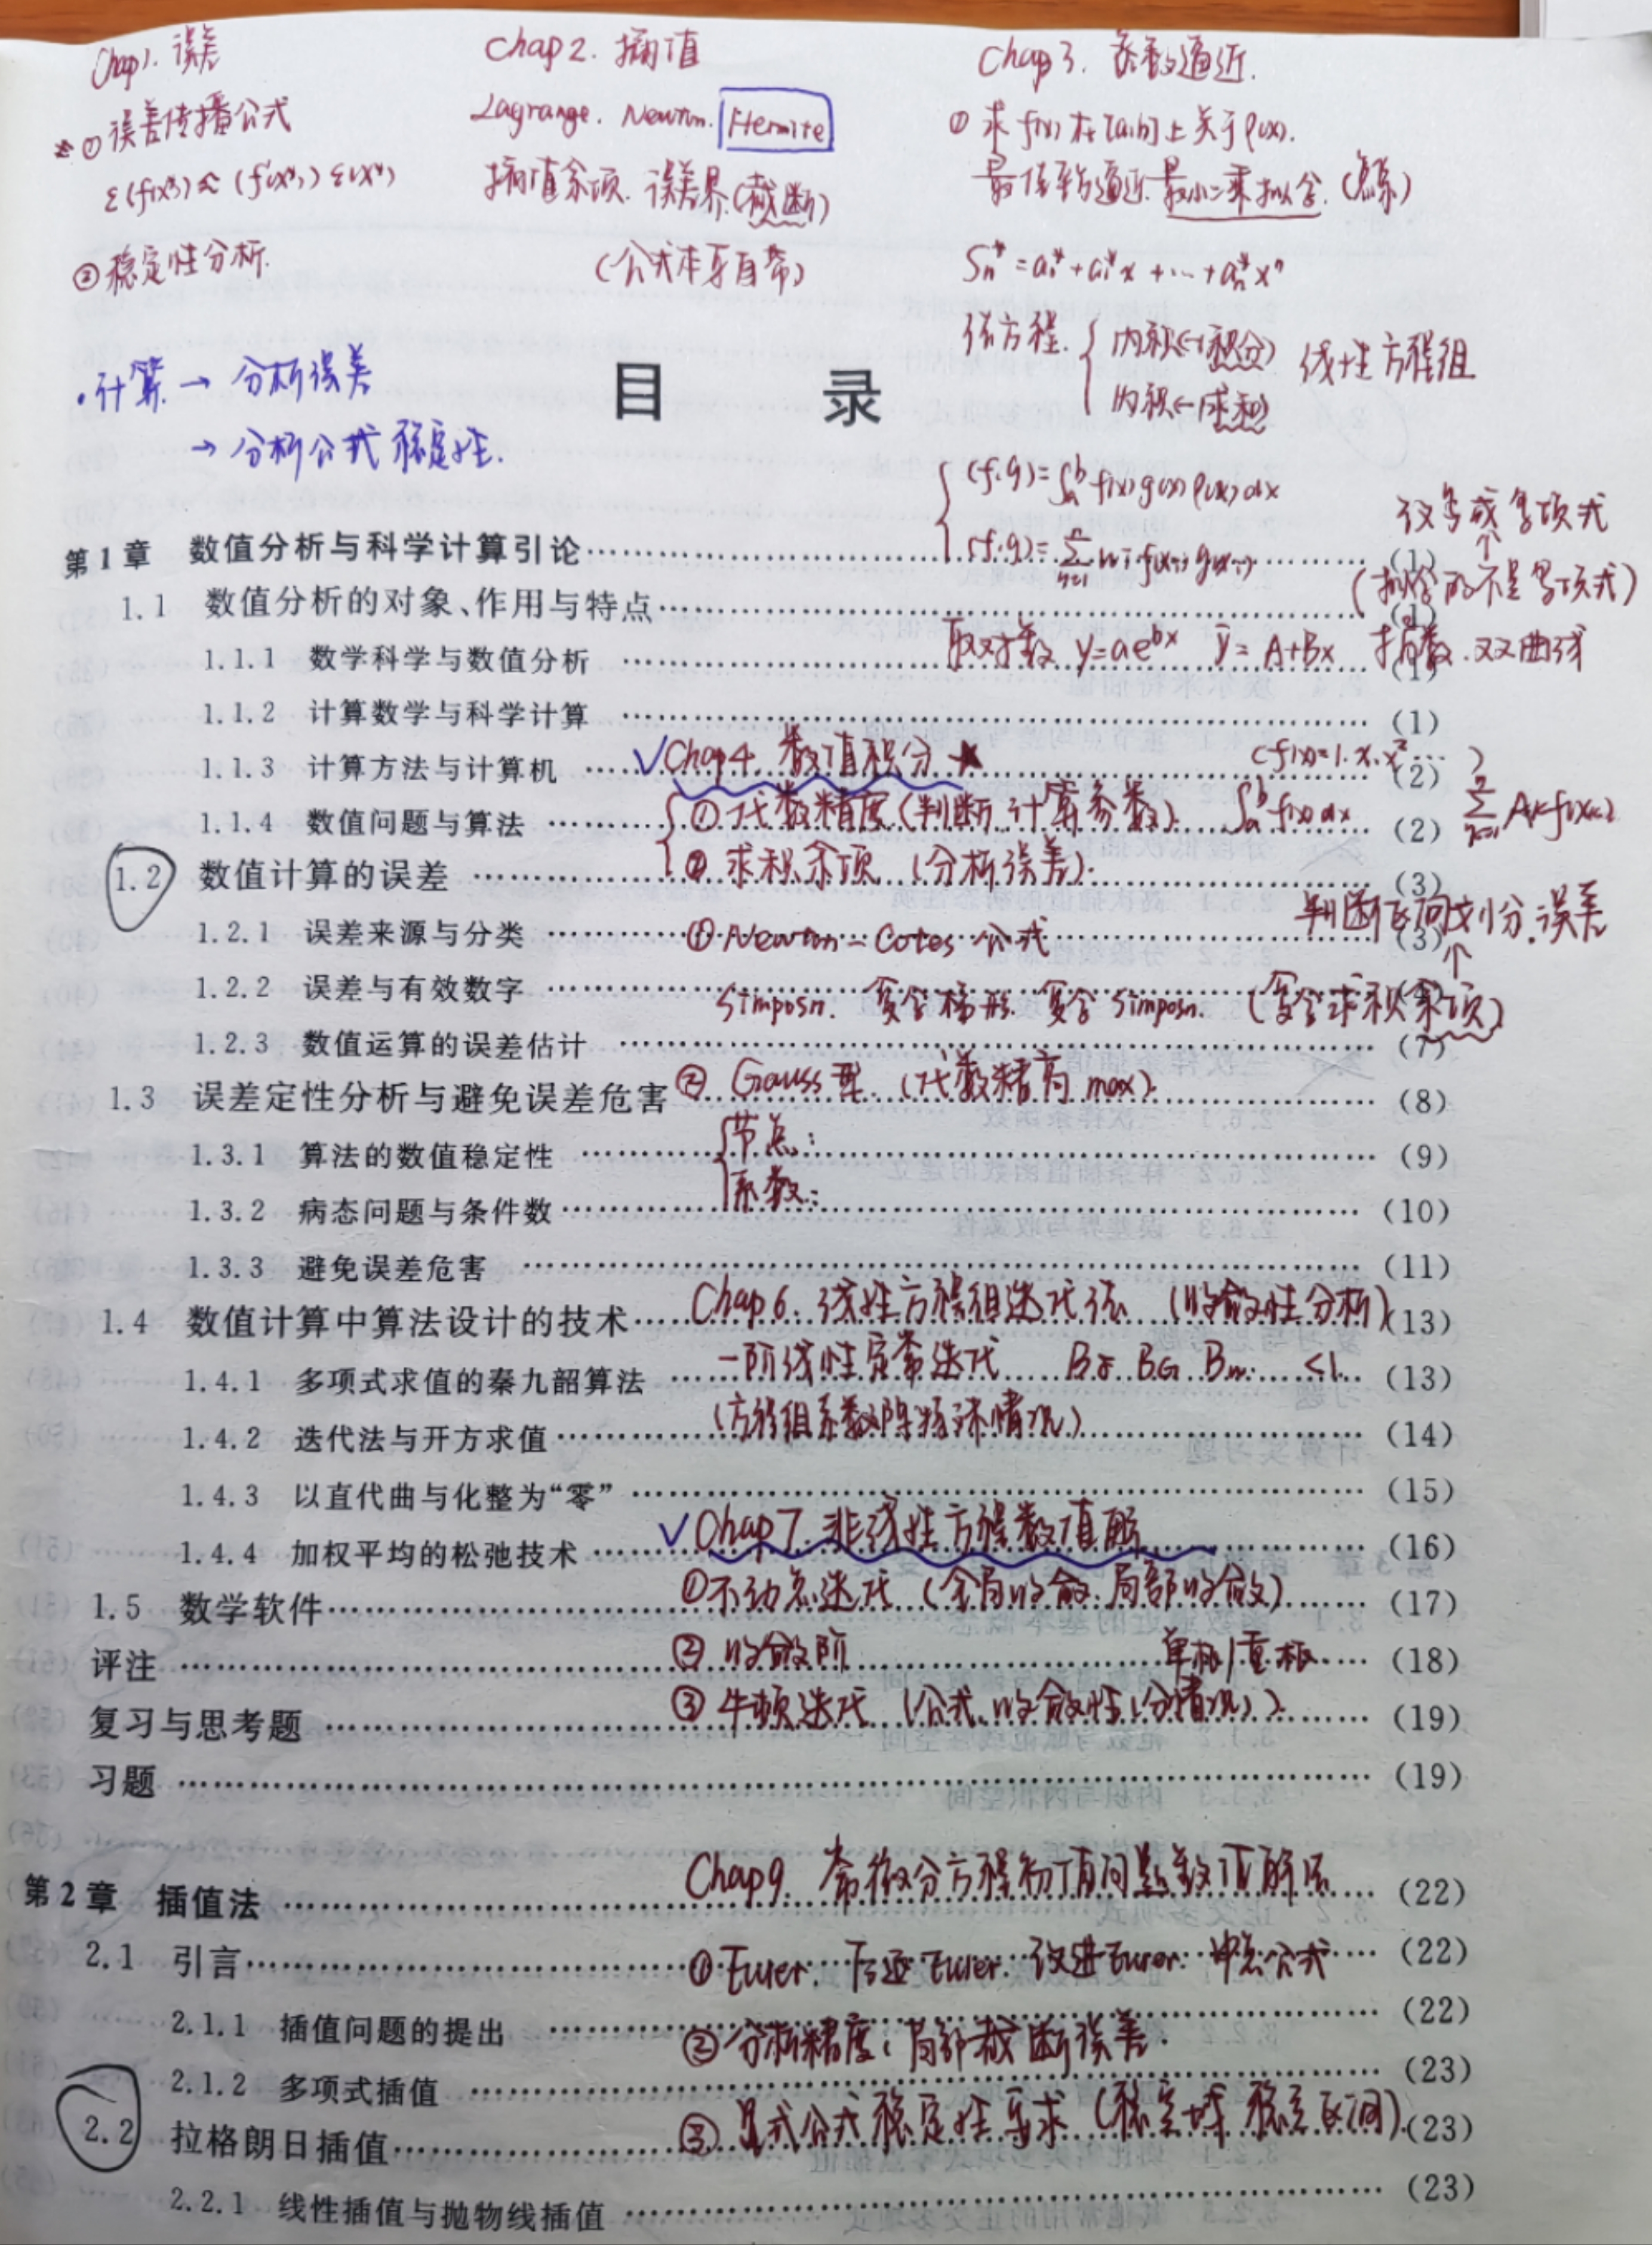 Chap1. 误差
① 误差传播公式
ε(f(x*)) ≈ (f'(x*)) ε(x*)
② 稳定性分析.
Chap 2. 插值
Lagrange. Newton. Hermite
插值余项. 误差界.(截断)
(公式本身自带)
Chap 3. 函数逼近.
① 求 f(x) 在[a,b]上关于ρ(x).
最佳平方逼近. 最小二乘拟合. (点系)
Sn* = a0* + a1* x + … + an* x^n
法方程. { 内积(→积分) 线性方程组
内积(→求和)
(f.g)=∫_a^b f(x) g(x) ρ(x) dx
(f.g)=∑ wi f(xi) g(xi)
(拟合的不是多项式)
取对数 y=ae^{bx} ȳ = A+Bx 指数. 双曲线
·计算 → 分析误差
→ 分析公式稳定性.
目 录
第1章 数值分析与科学计算引论 (1)
1.1 数值分析的对象、作用与特点 (1)
1.1.1 数学科学与数值分析 (1)
1.1.2 计算数学与科学计算 (1)
1.1.3 计算方法与计算机 (2)
1.1.4 数值问题与算法 (2)
1.2 数值计算的误差 (3)
1.2.1 误差来源与分类 (3)
1.2.2 误差与有效数字
1.2.3 数值运算的误差估计 (7)
1.3 误差定性分析与避免误差危害 (8)
1.3.1 算法的数值稳定性 (9)
1.3.2 病态问题与条件数 (10)
1.3.3 避免误差危害 (11)
1.4 数值计算中算法设计的技术 (13)
1.4.1 多项式求值的秦九韶算法 (13)
1.4.2 迭代法与开方求值 (14)
1.4.3 以直代曲与化整为“零” (15)
1.4.4 加权平均的松弛技术 (16)
1.5 数学软件 (17)
评注 (18)
复习与思考题 (19)
习题 (19)
第2章 插值法 (22)
2.1 引言 (22)
2.1.1 插值问题的提出 (22)
2.1.2 多项式插值 (23)
2.2 拉格朗日插值 (23)
2.2.1 线性插值与抛物线插值 (23)
✓Chap4. 数值积分 ★
(f(x)=1. x. x² … )
① 代数精度(判断.计算参数). ∫_a^b f(x) dx ∑ Ak f(xk)
② 求积余项 (分析误差).
判断区间划分.误差
① Newton-Cotes 公式
Simposn. 复合梯形. 复合 Simposn. (复合求积余项)
② Gauss型. (代数精高 max).
{ 节点:
系数:
Chap6. 线性方程组迭代法 (收敛性分析)
一阶线性定常迭代 BJ. BG. Bw. <1.
(方程组系数阵特殊情况)
✓Chap7. 非线性方程数值解
①不动点迭代 (全局收敛.局部收敛)
② 收敛阶 单根/重根
③ 牛顿迭代 (公式.收敛性(分情况))
Chap9. 常微分方程初值问题数值解法
① Euler. 后退Euler. 改进Euler. 中点公式
② 分析精度: 局部截断误差.
③ 显式公式稳定性要求 (稳定域 稳定区间)